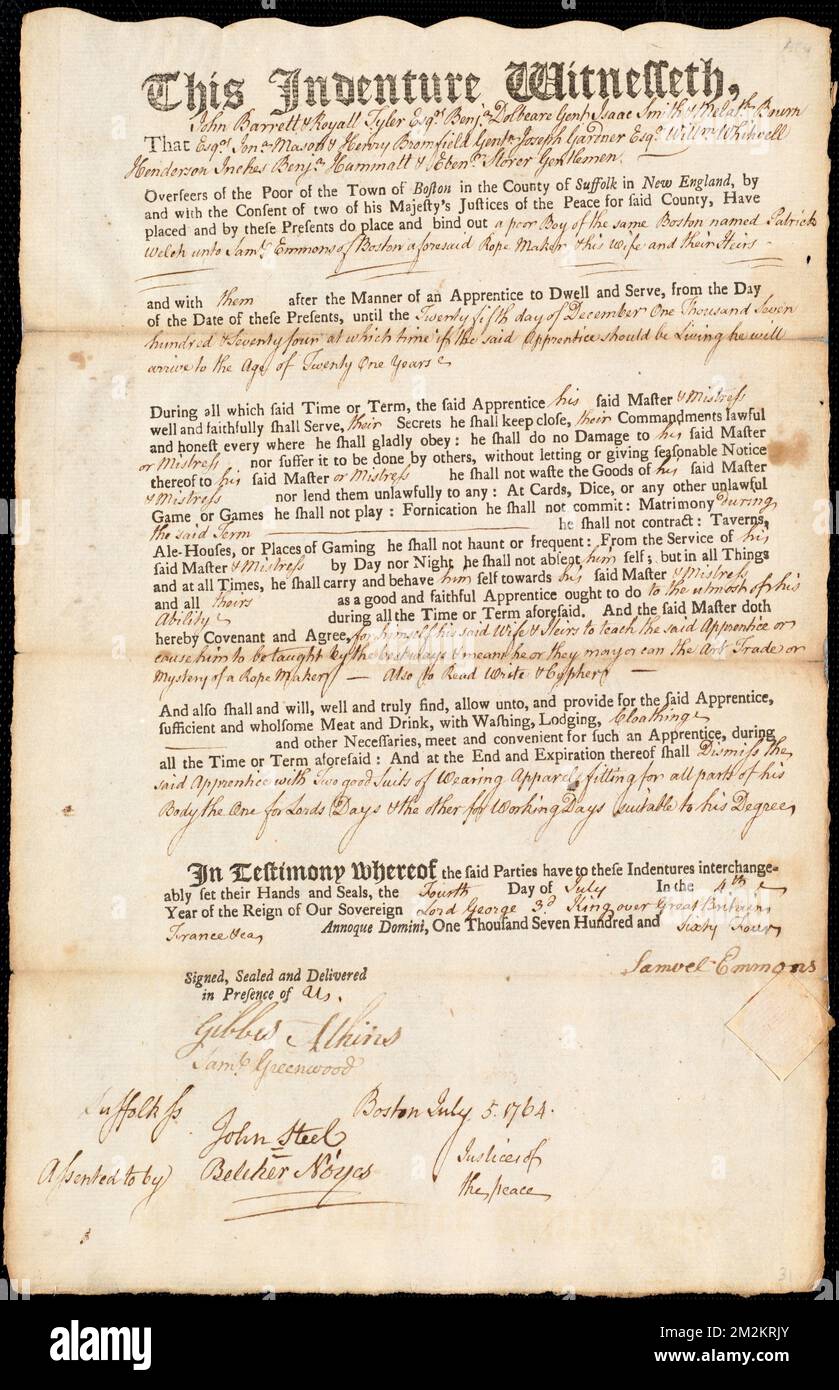 This Indenture Witnesseth,
John Barrett & Royall Tyler Esqrs. Benja. Dolbeare Gent. Isaac Smith &
That Esqr. Jona. Mason & Henry Bromfield Gentn. Joseph Gardner Esqr. Willm. Whitwell
Henderson Inches Benja. Hammatt & Ebenr. Storer Gentlemen.
Overseers of the Poor of the Town of Boston in the County of Suffolk in New England, by
and with the Consent of two of his Majesty's Justices of the Peace for said County, Have
placed and by these Presents do place and bind out a poor Boy of the same Boston named Patrick
Welch unto Saml. Emmons of Boston aforesaid Rope Maker & his Wife and their Heirs
and with them after the Manner of an Apprentice to Dwell and Serve, from the Day
of the Date of these Presents, until the Twenty fifth day of December One Thousand Seven
hundred & Seventy four at which time if the said Apprentice should be Living he will
arrive to the Age of Twenty One Years
During all which said Time or Term, the said Apprentice his said Master & Mistress
well and faithfully shall Serve, their Secrets he shall keep close, their Commandments lawful
and honest every where he shall gladly obey: he shall do no Damage to his said Master
or Mistress nor suffer it to be done by others, without letting or giving seasonable Notice
thereof to his said Master or Mistress he shall not waste the Goods of his said Master
& Mistress nor lend them unlawfully to any: At Cards, Dice, or any other unlawful
Game or Games he shall not play: Fornication he shall not commit: Matrimony during
the said Term he shall not contract: Taverns,
Ale-Houses, or Places of Gaming he shall not haunt or frequent: From the Service of his
said Master & Mistress by Day nor Night he shall not absent him self; but in all Things
and at all Times, he shall carry and behave him self towards his said Master & Mistress
and all theirs as a good and faithful Apprentice ought to do to the utmost of his
Ability during all the Time or Term aforesaid. And the said Master doth
hereby Covenant and Agree, for himself his said Wife & Heirs to teach the said Apprentice or
cause him to be taught by the best ways & means he or they may or can the Art Trade or
Mystery of a Rope Maker — Also to Read Write & Cypher —
And also shall and will, well and truly find, allow unto, and provide for the said Apprentice,
sufficient and wholsome Meat and Drink, with Washing, Lodging, Cloathing
and other Necessaries, meet and convenient for such an Apprentice, during
all the Time or Term aforesaid: And at the End and Expiration thereof shall Dismiss the
said Apprentice with Two good Suits of Wearing Apparel fitting for all parts of his
Body the One for Lords Days & the other for Working Days suitable to his Degree
In Testimony Whereof the said Parties have to these Indentures interchange-
ably set their Hands and Seals, the Fourth Day of July In the 4th
Year of the Reign of Our Sovereign Lord George 3d King over Great Britain
France &ca Annoque Domini, One Thousand Seven Hundred and Sixty Four
Samuel Emmons
Signed, Sealed and Delivered
in Presence of Us.
Gibbes Atkins
Saml. Greenwood
Suffolk ss. Boston July 5. 1764.
John Steel
Assented to by Belcher Noyes Justices of
the peace
31
alamy
Image ID: 2M2KRJY
www.alamy.com